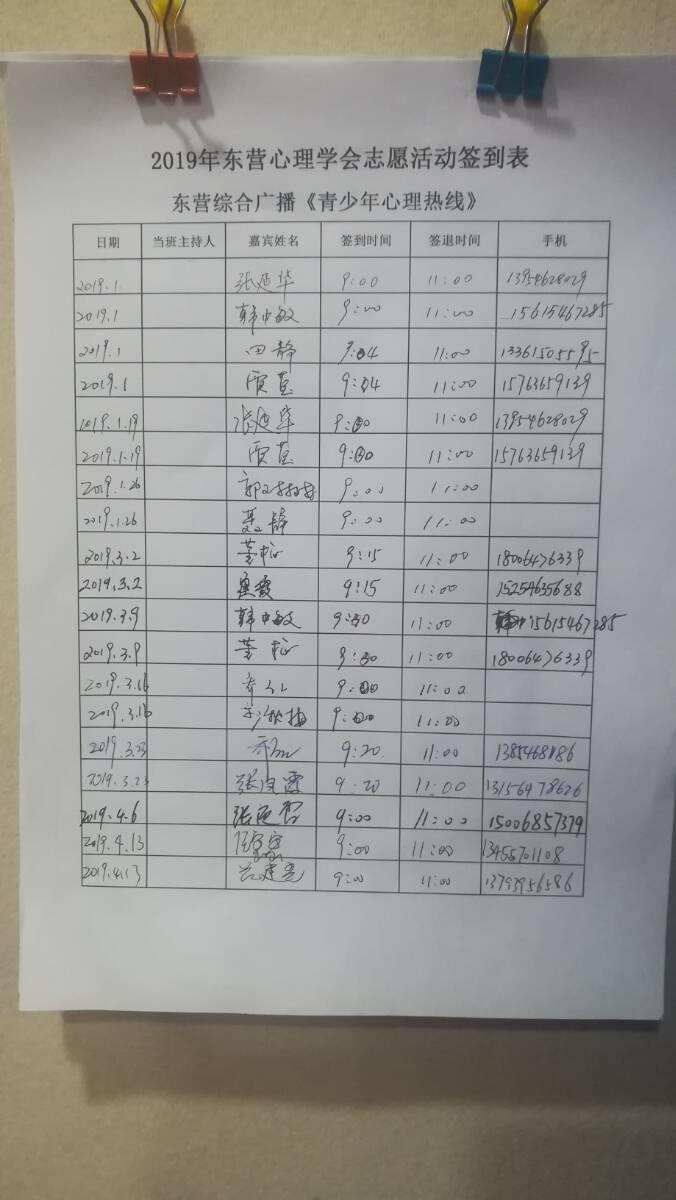 2019年东营心理学会志愿活动签到表
东营综合广播《青少年心理热线》
日期 当班主持人 嘉宾姓名 签到时间 签退时间 手机
2019.1. 张延华 9:00 11:00 13954628029
2019.1 韩中敏 9:00 11:00 15615467285
2019.1 田静 9:04 11:00 13361505595
2019.1 贾蕾 9:04 11:00 15763659139
2019.1.19 张延华 9:00 11:00 13954628029
2019.1.19 贾蕾 9:00 11:00 15763659139
2019.1.26 9:00 11:00
2019.1.26 聂静 9:00 11:00
2019.3.2 9:15 11:00 18006476339
2019.3.2 9:15 11:00 15254635688
2019.3.9 韩中敏 9:30 11:00 15615467285
2019.3.9 9:30 11:00 18006476339
2019.3.16 9:00 11:00
2019.3.16 9:00 11:00
2019.3.23 9:20 11:00
2019.3.23 9:20 11:00 13156478626
2019.4.6 9:00 11:00 15006857379
2019.4.13 9:00 11:00 13455701108
2019.4.13 9:00 11:00 13793956586